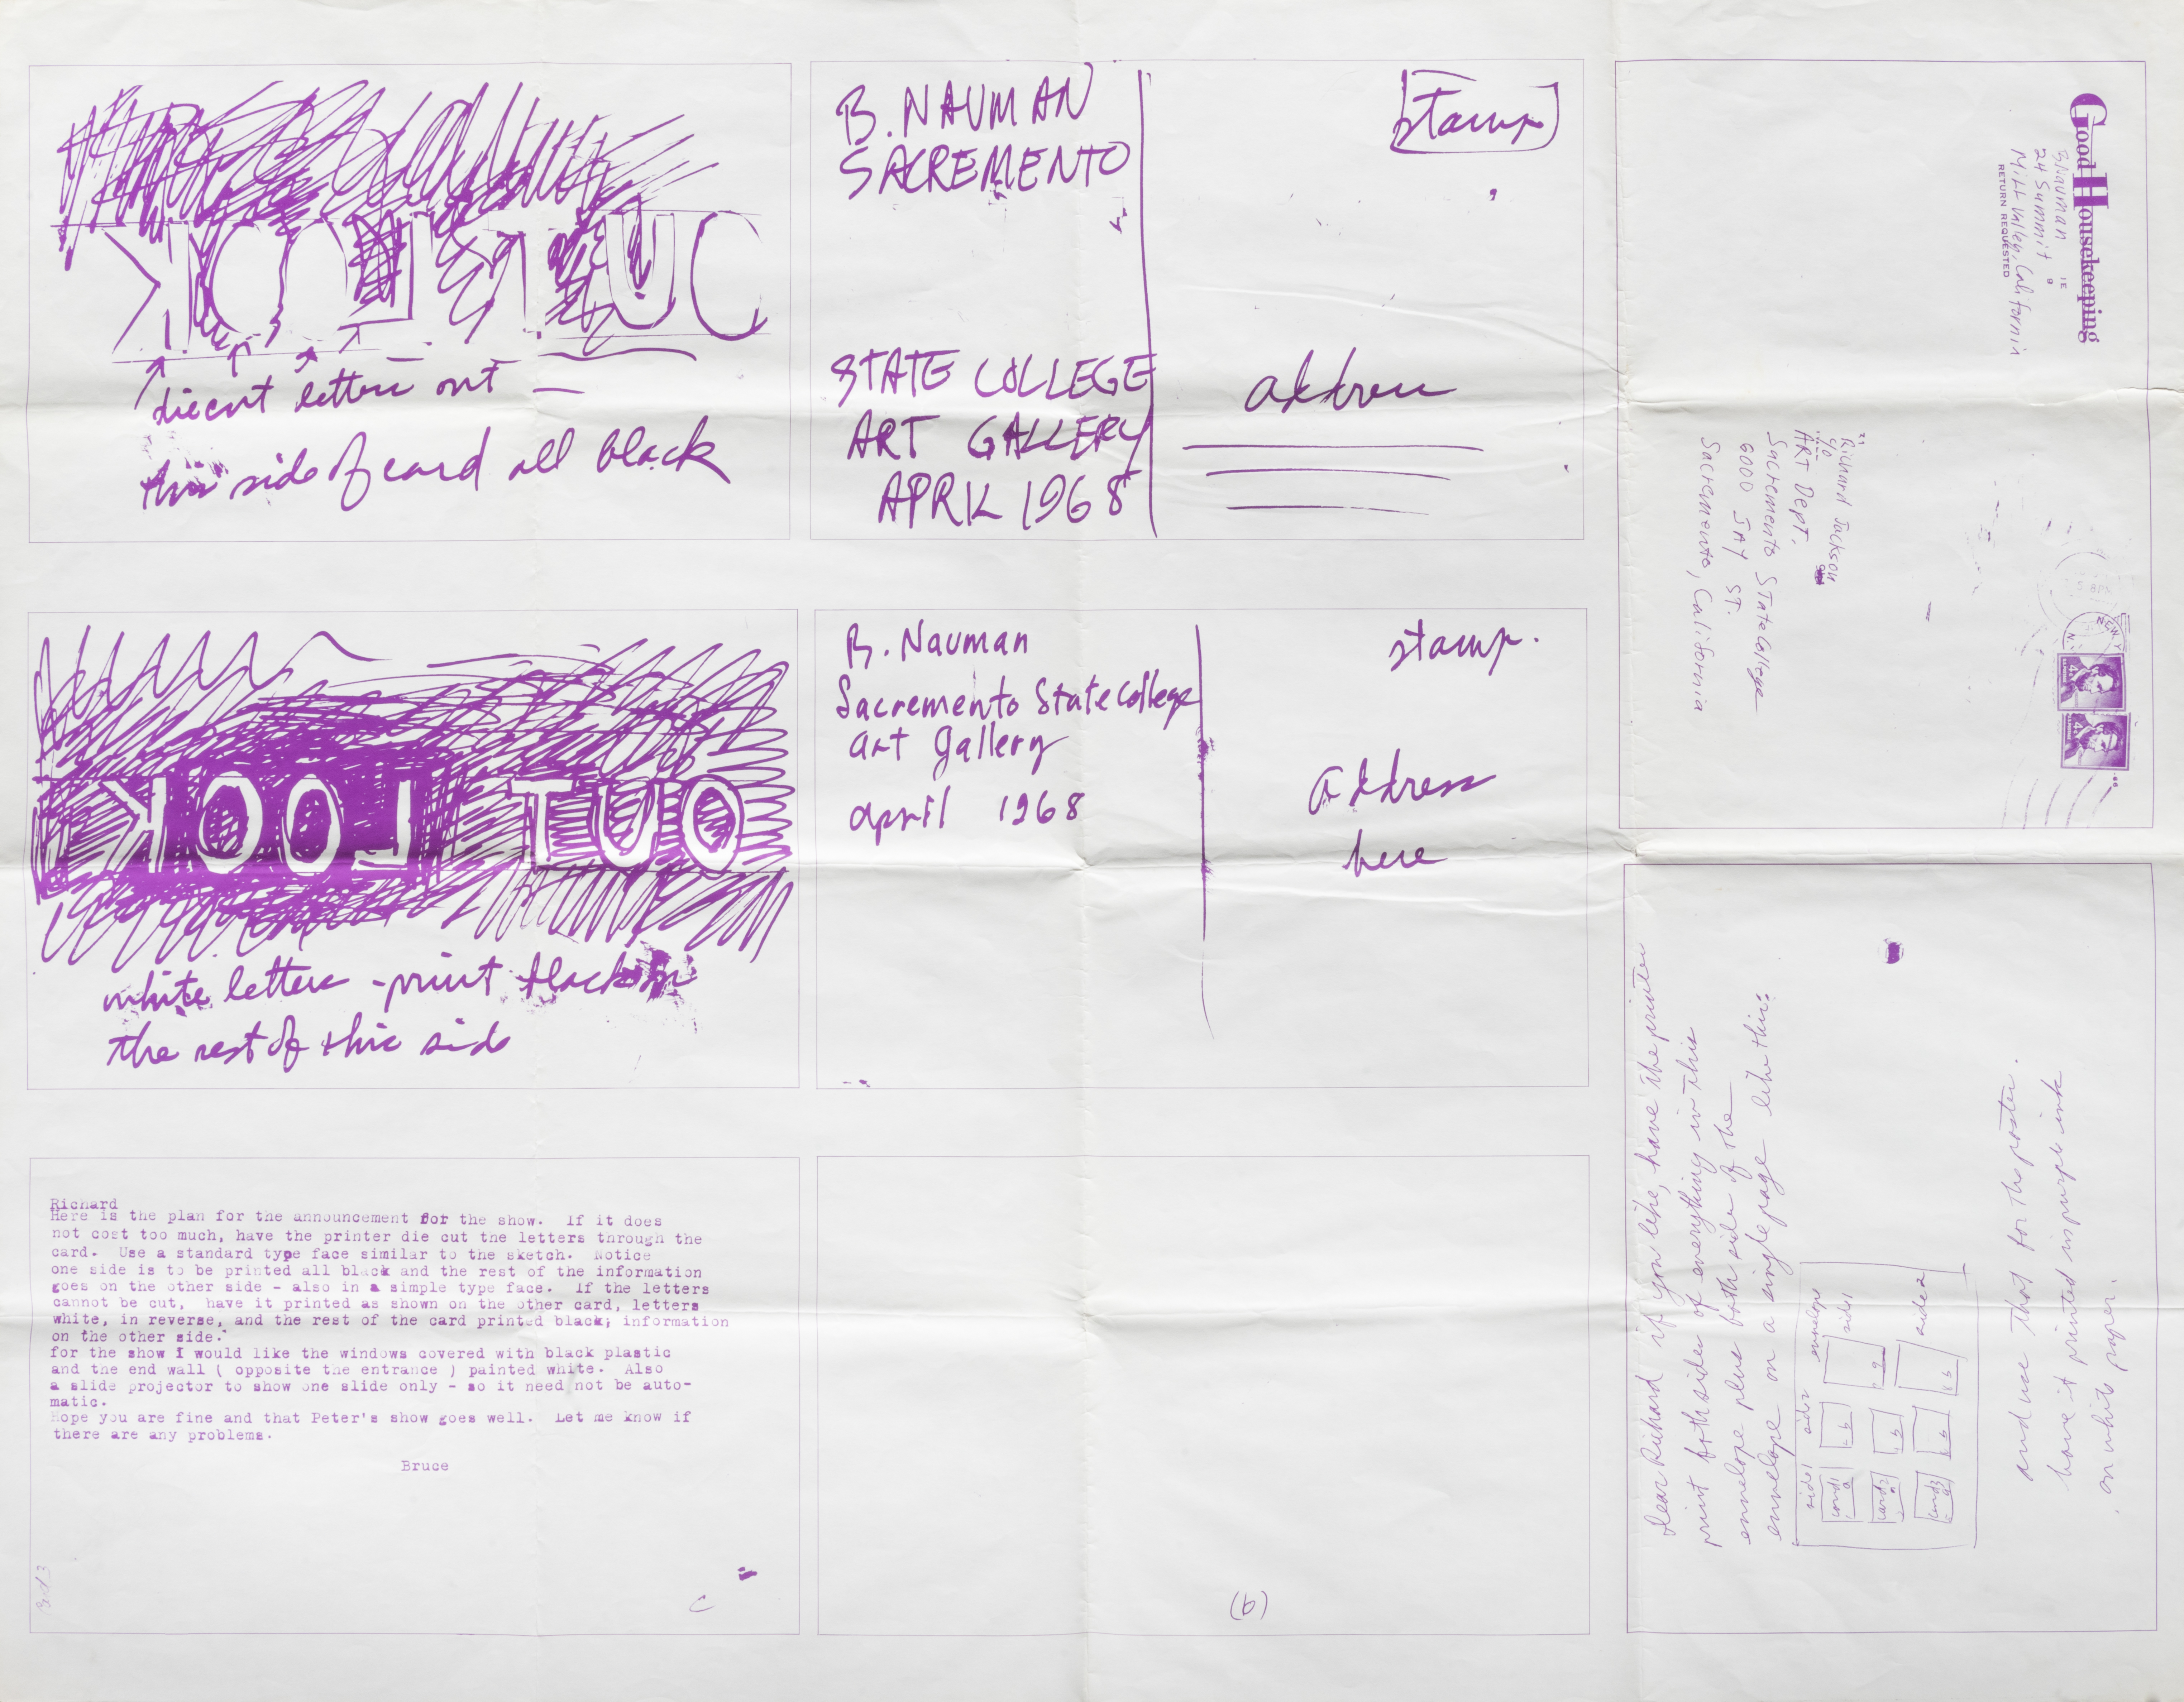 KOOL TUO
diecut letters out —
this side of card all black
B. NAUMAN
SACREMENTO
STATE COLLEGE
ART GALLERY
APRIL 1968
stamp
address
KOOL TUO
white letters - print black in
the rest of this side
B. Nauman
Sacremento State College
art gallery
april 1968
stamp.
address
here
Richard
Here is the plan for the announcement for the show. If it does
not cost too much, have the printer die cut the letters through the
card. Use a standard type face similar to the sketch. Notice
one side is to be printed all black and the rest of the information
goes on the other side - also in a simple type face. If the letters
cannot be cut, have it printed as shown on the other card, letters
white, in reverse, and the rest of the card printed black; information
on the other side.
for the show I would like the windows covered with black plastic
and the end wall ( opposite the entrance ) painted white. Also
a slide projector to show one slide only - so it need not be auto-
matic.
Hope you are fine and that Peter's show goes well. Let me know if
there are any problems.
Bruce
(b)
Good Housekeeping
B Nauman
24 Summit
Mill Valley, California
RETURN REQUESTED
Richard Jackson
c/o
ART Dept.
Sacremento State College
6000 JAY ST.
Sacremento, California
NEW Y
4¢
4¢
Dear Richard if you like, have the printer
print both sides of everything in this
envelope plus both sides of the
envelope on a single page like this:
side 1 side 2 envelope
side 1
side 2
card 1
a
b
card 2
a
b
card 3
a
b
and use that for the poster.
have it printed in purple ink
on white paper.